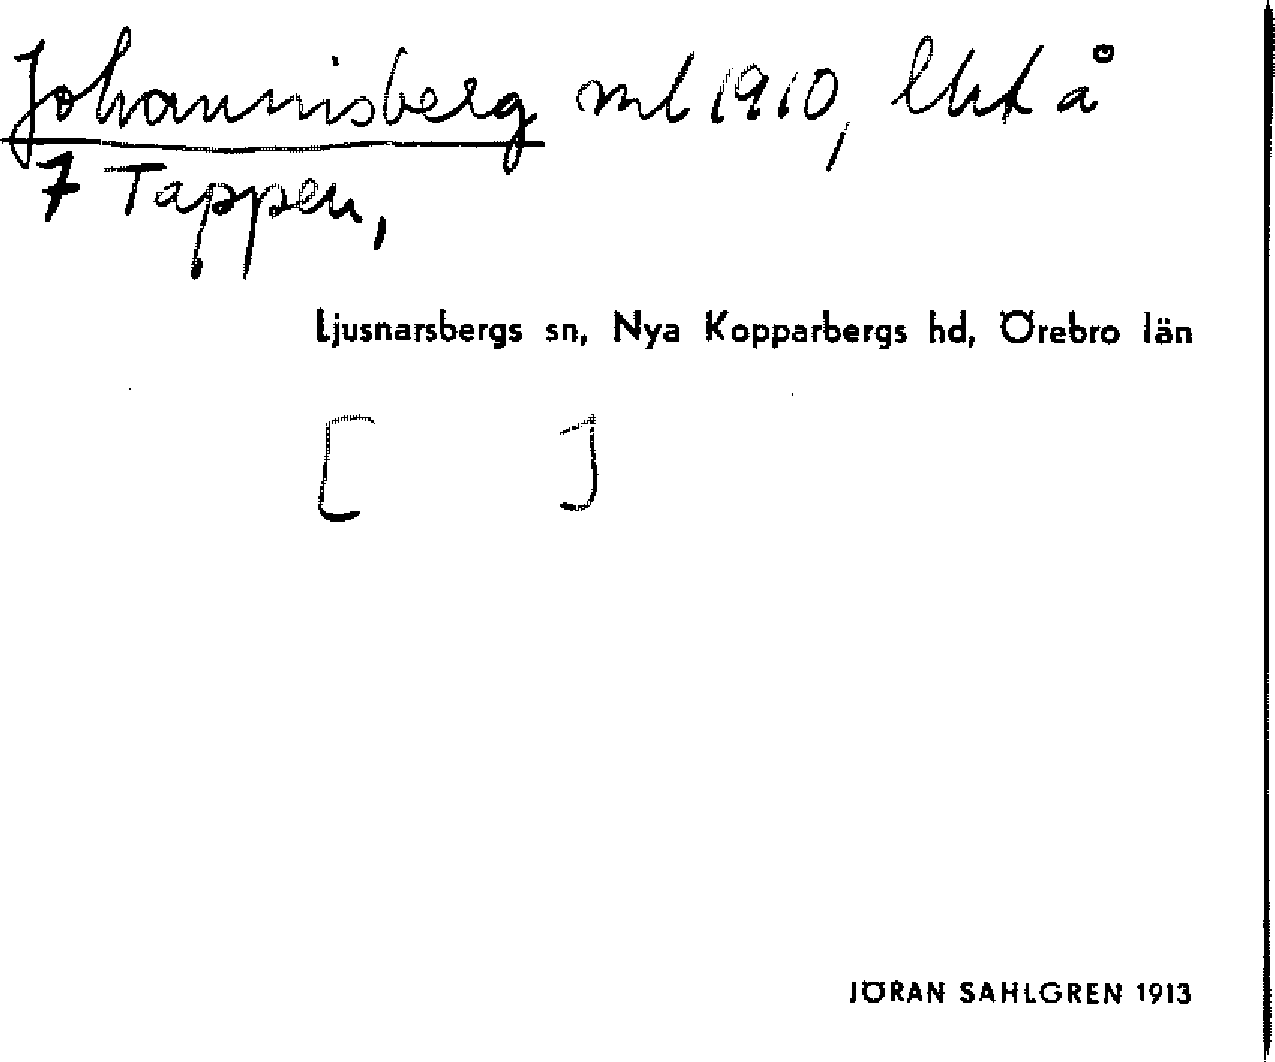 Johannisberg ml 1910, lht å
7 Tappen,
Ljusnarsbergs sn, Nya Kopparbergs hd, Örebro län
[ ]
JÖRAN SAHLGREN 1913